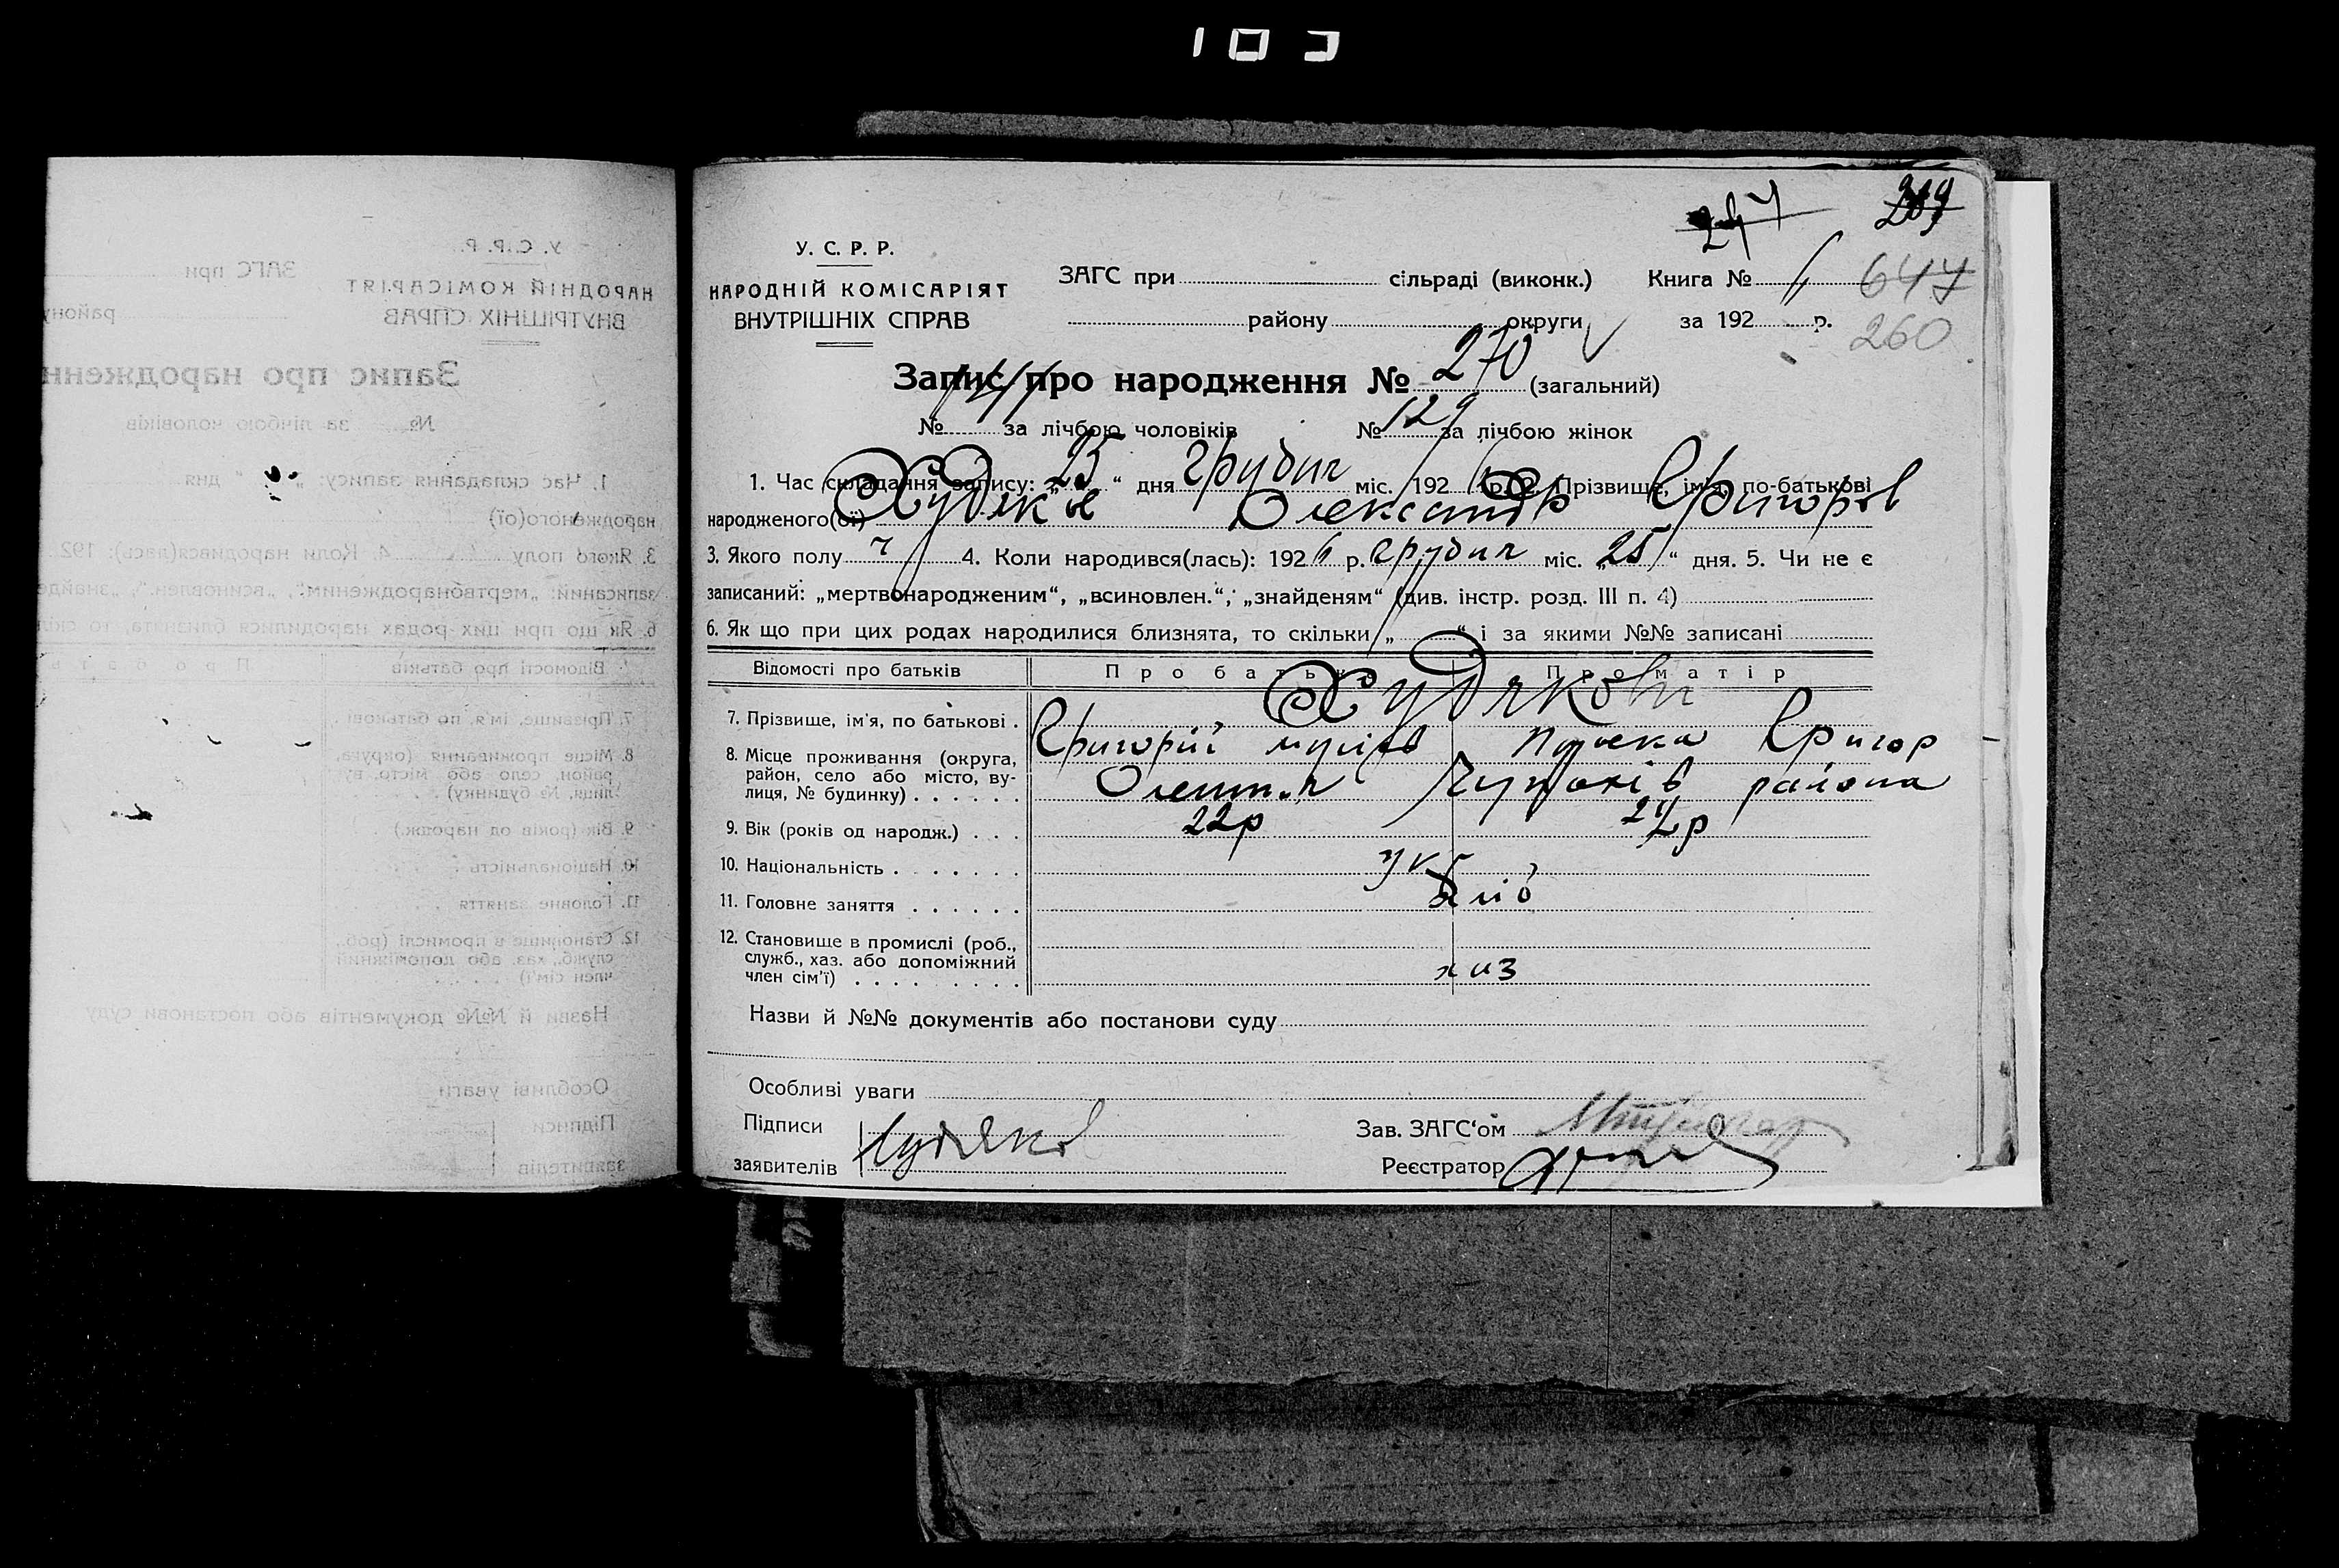 247 289
У. С. Р. Р.
НАРОДНІЙ КОМІСАРІЯТ
ВНУТРІШНІХ СПРАВ
ЗАГС при сільраді (виконк.) Книга № 647
району округи за 192 р. 260
Запис про народження № 270 (загальний)
№ за лічбою чоловіків № 129 за лічбою жінок
1. Час складання запису: „25“ дня грудня міс. 1926 р. 2. Прізвище, ім'я, по-батькові
народженого(ої) Худяков Олександр Григоров
3. Якого полу ч 4. Коли народився(лась): 1926 р. грудня міс. „25“ дня. 5. Чи не є
записаний: „мертвонародженим“, „всиновлен.“, „знайденям“ (див. інстр. розд. III п. 4)
6. Як що при цих родах народилися близнята, то скільки „ “ і за якими №№ записані
Відомості про батьків Про батька Про матір
Худякови
7. Прізвище, ім'я, по батькові . Григорій Григор
8. Місце проживання (округа, район, село або місто, вулиця, № будинку) . . . . . . района
9. Вік (років од народж.) . . . 22р
10. Національність . . . . . . . укр
11. Головне заняття . . . . . . хліб
12. Становище в промислі (роб., служб., хаз. або допоміжний член сім'ї) . . . . . . . . . хаз
Назви й №№ документів або постанови суду
Особливі уваги
Підписи
заявителів Худяков
Зав. ЗАГС‘ом
Реєстратор
У. С. Р. Р.
НАРОДНІЙ КОМІСАРІЯТ
ВНУТРІШНІХ СПРАВ
ЗАГС при
району
Запис про народженн
№ за лічбою чоловіків
1. Час складання запису: „ “ дня
народженого(ої)
3. Якого полу 4. Коли народився(лась): 192
записаний: „мертвонародженим“, „всиновлен.“, „знайде
6. Як що при цих родах народилися близнята, то скіл
Відомості про батьків
7. Прізвище, ім'я, по батькові .
8. Місце проживання (округа, район, село або місто, вулиця, № будинку)
9. Вік (років од народж.)
10. Національність
11. Головне заняття
12. Становище в промислі (роб., служб., хаз. або допоміжний член сім'ї)
Назви й №№ документів або постанови суду
Особливі уваги
Підписи
заявителів